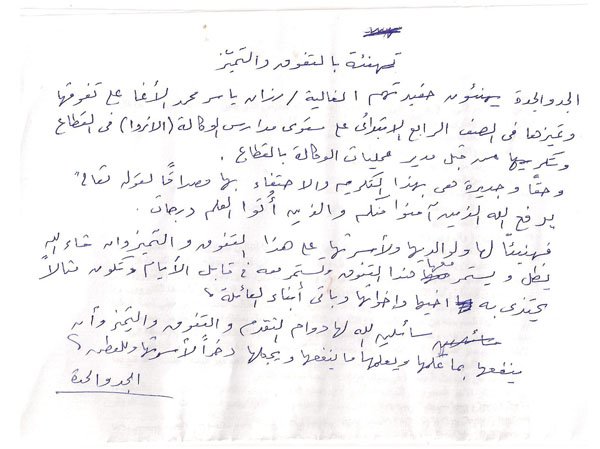 تهنئة بالتفوق والتميّز
الجد والجدة يهنئون حفيدتهم الغالية / رزان ياسر محمد الأغا على تفوقها
وتميزها فى الصف الرابع الابتدائى على مستوى مدارس الوكالة (الانروا) فى القطاع
وتكريمها من قبل مدير عمليات الوكالة بالقطاع .
وحقًا وجديرة هى بهذا التكريم والاحتفاء بها مصداقًا لقوله تعالى "
يرفع الله الذين آمنوا منكم والذين أُتوا العلم درجات .
فهنيئًا لها ولوالديها ولأسرتها على هذا التفوق والتميز وان شاء الله
يظل ويستمر معها هذا التفوق وتستمر معه فى قابل الأيام وتكون مثالاً
يحتذى به اخيها واخواتها وباقى أبناء العائلة
سائلين الله لها دوام التقدم والتفوق والتميز وأن
ينفعها بما علمها ويعلمها ما ينفعها ويجعلها ذخراً لأسرتها وللوطن
الجد والجدة